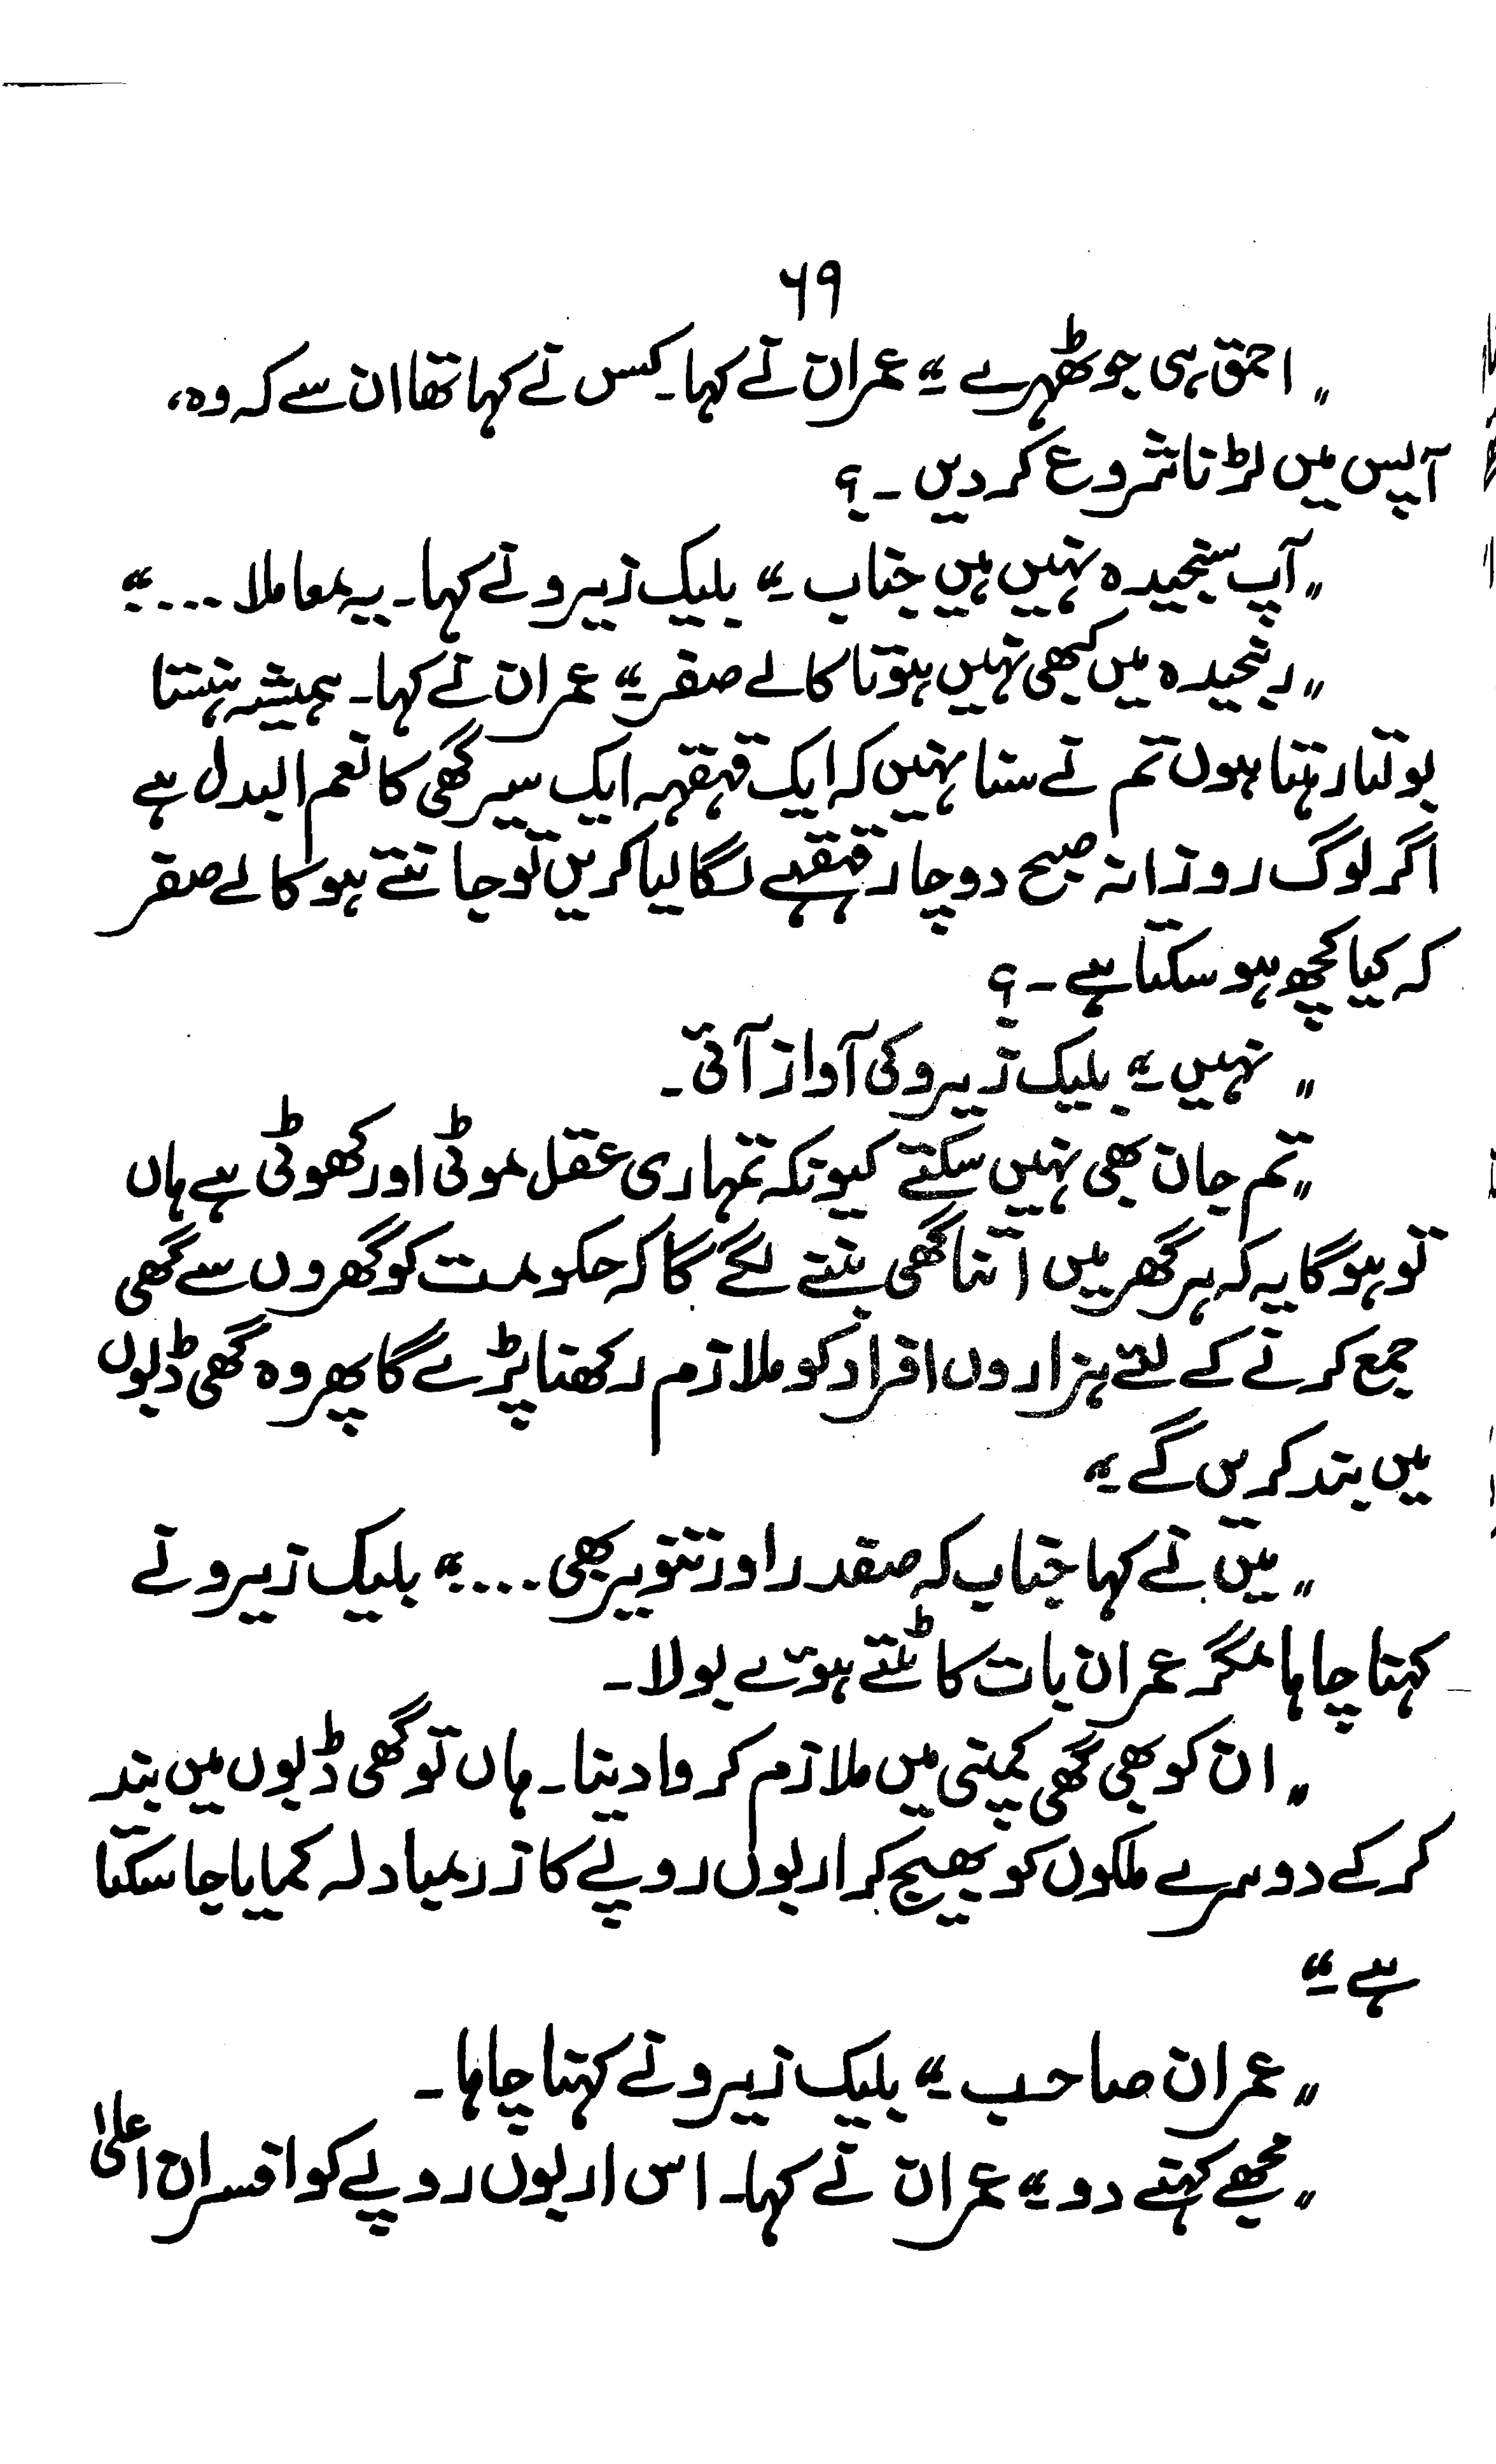 ۶۹
" احمق ہی جو ٹھہرے ۔" عمران نے کہا۔ کس نے کہا تھا ان سے کہ وہ،
آپس میں لڑنا شروع کر دیں ۔؟
" آپ سنجیدہ نہیں ہیں جناب ۔" بلیک زیرو نے کہا۔ یہ معاملا ....."
" رنجیدہ میں کبھی نہیں ہوتا کالے صفر ۔" عمران نے کہا۔ ہمیشہ ہنستا
بولتا رہتا ہوں تم نے سنا نہیں کہ ایک قہقہہ ایک سیر گھی کا نعم البدل ہے
اگر لوگ روزانہ صبح دو چار قہقہے لگا لیا کریں تو جانتے ہو کالے صفر
کہ کیا کچھ ہو سکتا ہے ۔؟
" نہیں ۔" بلیک زیرو کی آواز آئی ۔
" تم جان بھی نہیں سکتے کیونکہ تمہاری عقل موٹی اور کھوٹی ہے ہاں
تو ہوگا یہ کہ ہر گھر میں اتنا گھی بننے لگے گا کہ حکومت کو گھروں سے گھی
جمع کرنے کے لئے ہزاروں افراد کو ملازم رکھنا پڑے گا پھر وہ گھی ڈبوں
میں بند کریں گے ۔"
" میں نے کہا جناب کہ صفدر اور تنویر بھی ....." بلیک زیرو نے
کہنا چاہا مگر عمران بات کاٹتے ہوئے بولا ۔
" ان کو بھی گھی کمپنی میں ملازم کروا دینا ۔ ہاں تو گھی ڈبوں میں بند
کر کے دوسرے ملکوں کو بھیج کر اربوں روپے کا زرمبادلہ کمایا جا سکتا
ہے ۔"
" عمران صاحب ۔" بلیک زیرو نے کہنا چاہا ۔
" مجھے کہنے دو ۔" عمران نے کہا۔ اس اربوں روپے کو افسران اعلیٰ